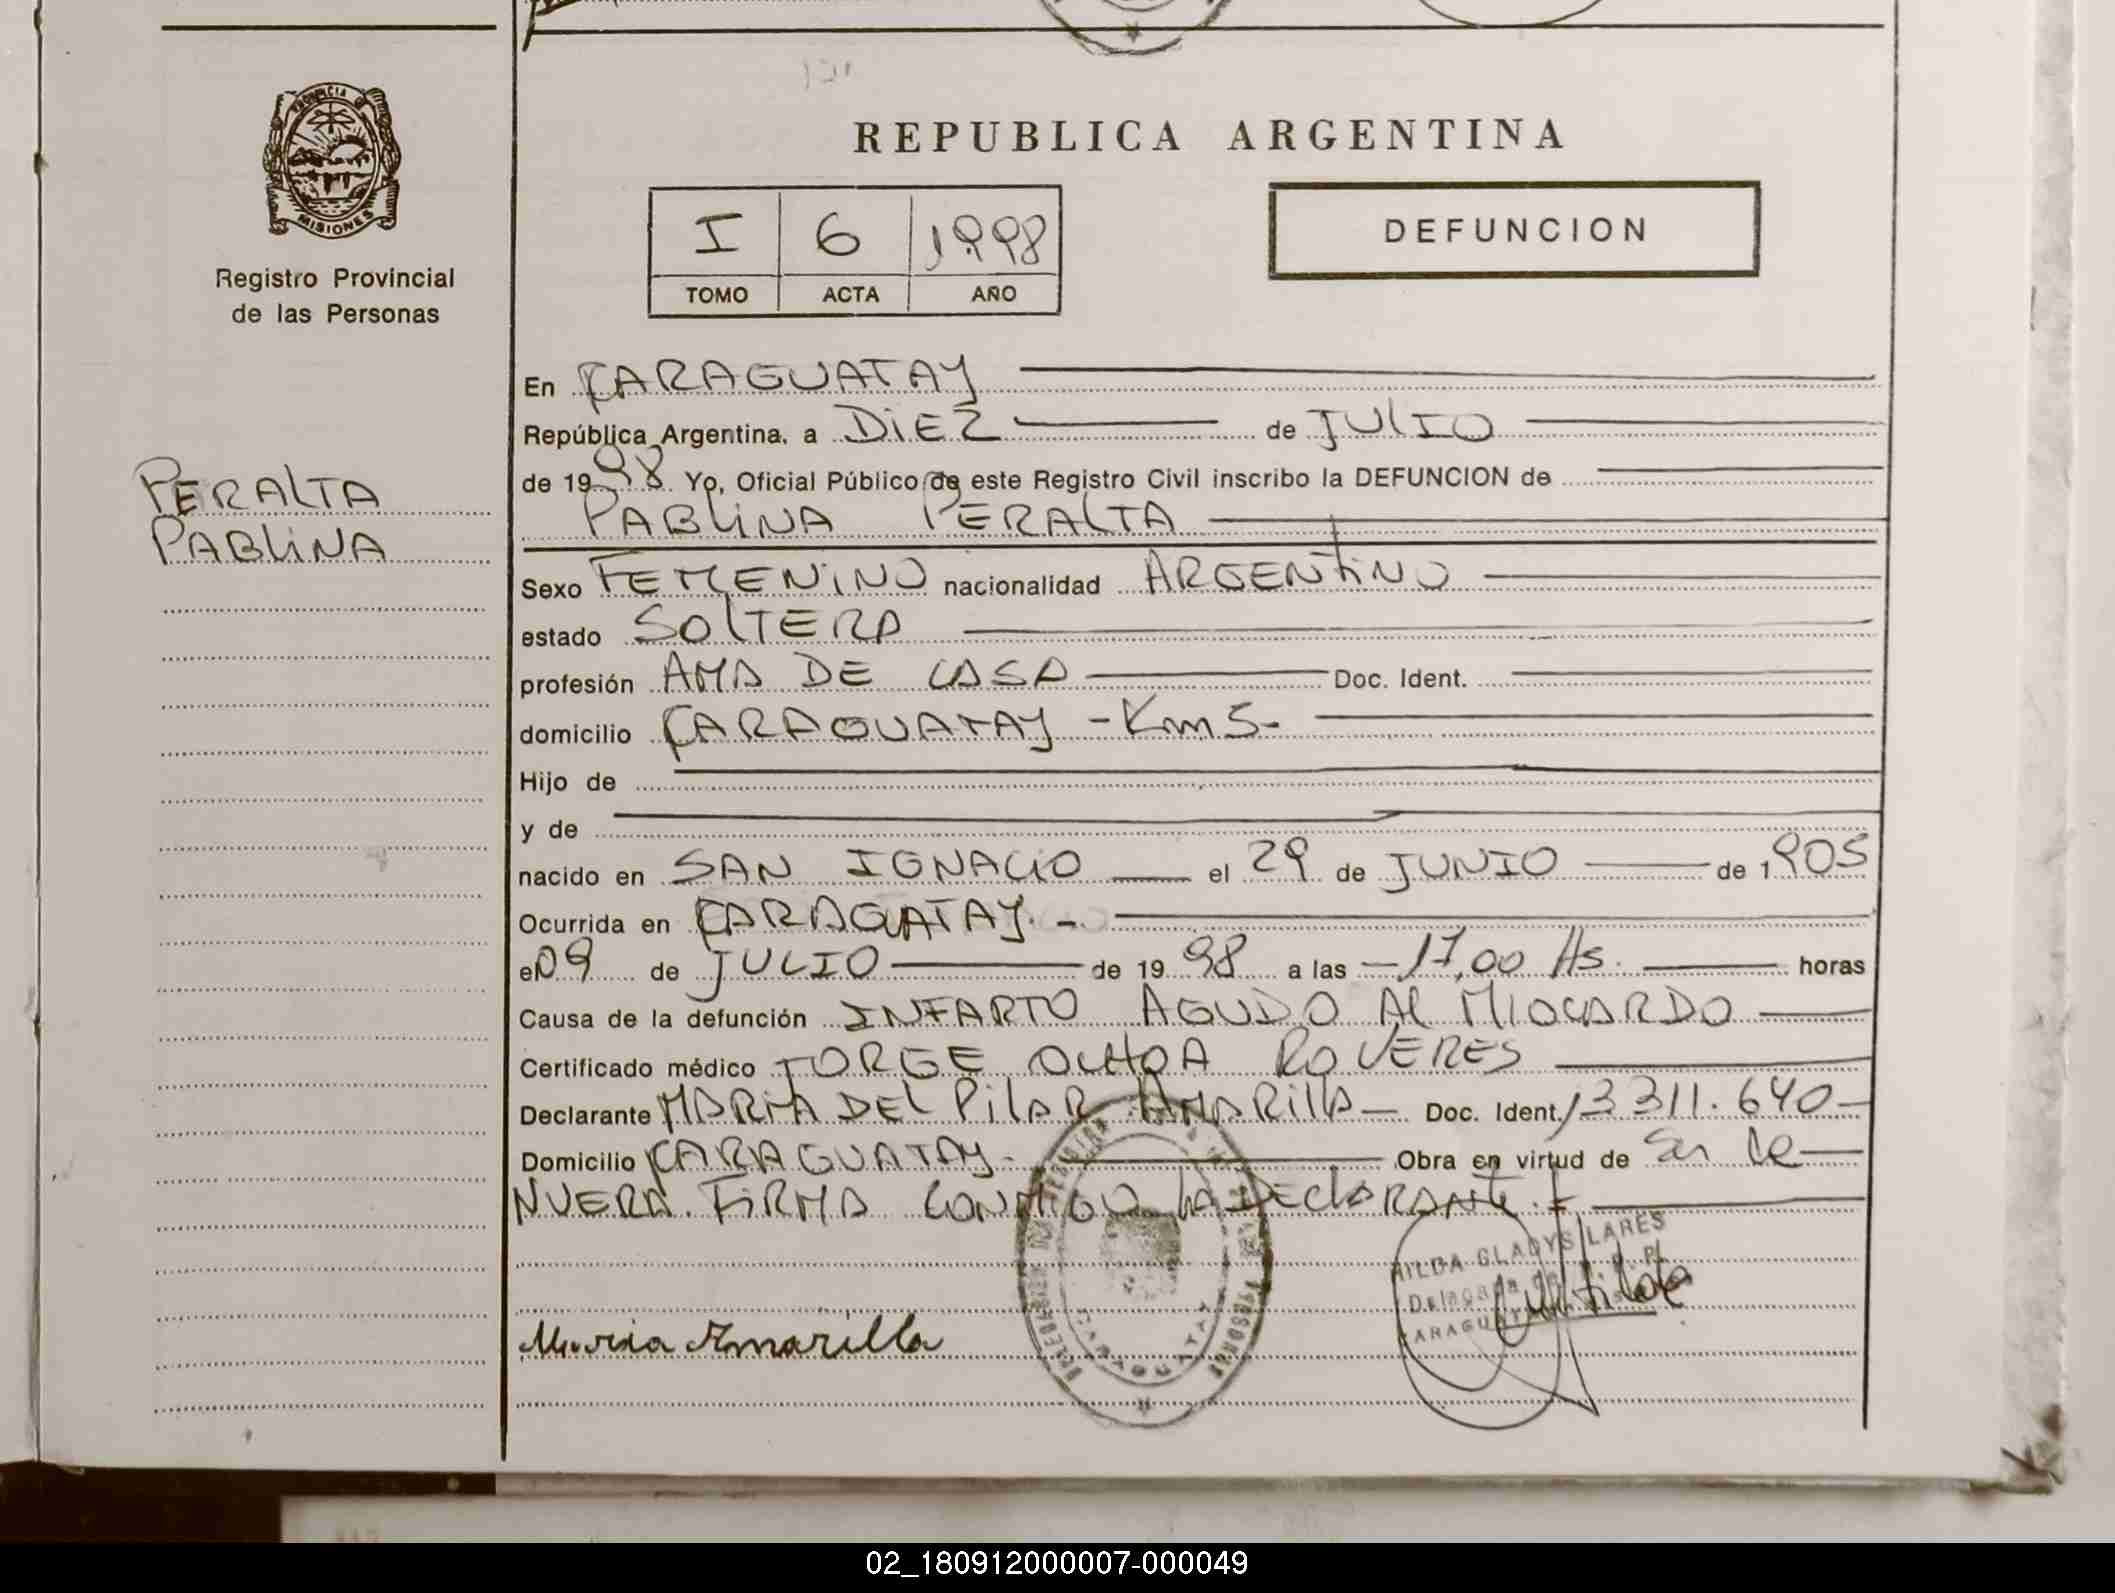 PROVINCIA D
MISIONES
Registro Provincial
de las Personas
PERALTA
PABLINA
REPUBLICA ARGENTINA
I 6 1998
TOMO ACTA AÑO
DEFUNCION
En CARAGUATAY
República Argentina, a DIEZ de JULIO
de 1998 Yo, Oficial Público de este Registro Civil inscribo la DEFUNCION de
PABLINA PERALTA
Sexo FEMENINO nacionalidad ARGENTINO
estado SOLTERA
profesión AMA DE CASA Doc. Ident.
domicilio CARAGUATAY - Km 5-
Hijo de
y de
nacido en SAN IGNACIO el 29 de JUNIO de 1905
Ocurrida en CARAGUATAY. -
el 09 de JULIO de 19 98 a las - 17,00 Hs. horas
Causa de la defunción INFARTO AGUDO AL MIOCARDO
Certificado médico JORGE OCHOA ROVERES
Declarante MARIA DEL PILAR AMARILLA Doc. Ident. 13311.640
Domicilio CARAGUATAY. Obra en virtud de Ser la
NUERA. FIRMA CONMIGO LA DECLARANTE.
HILDA GLADYS LARES
Delegada
CARAGUATAY
Maria Amarilla
02_180912000007-000049